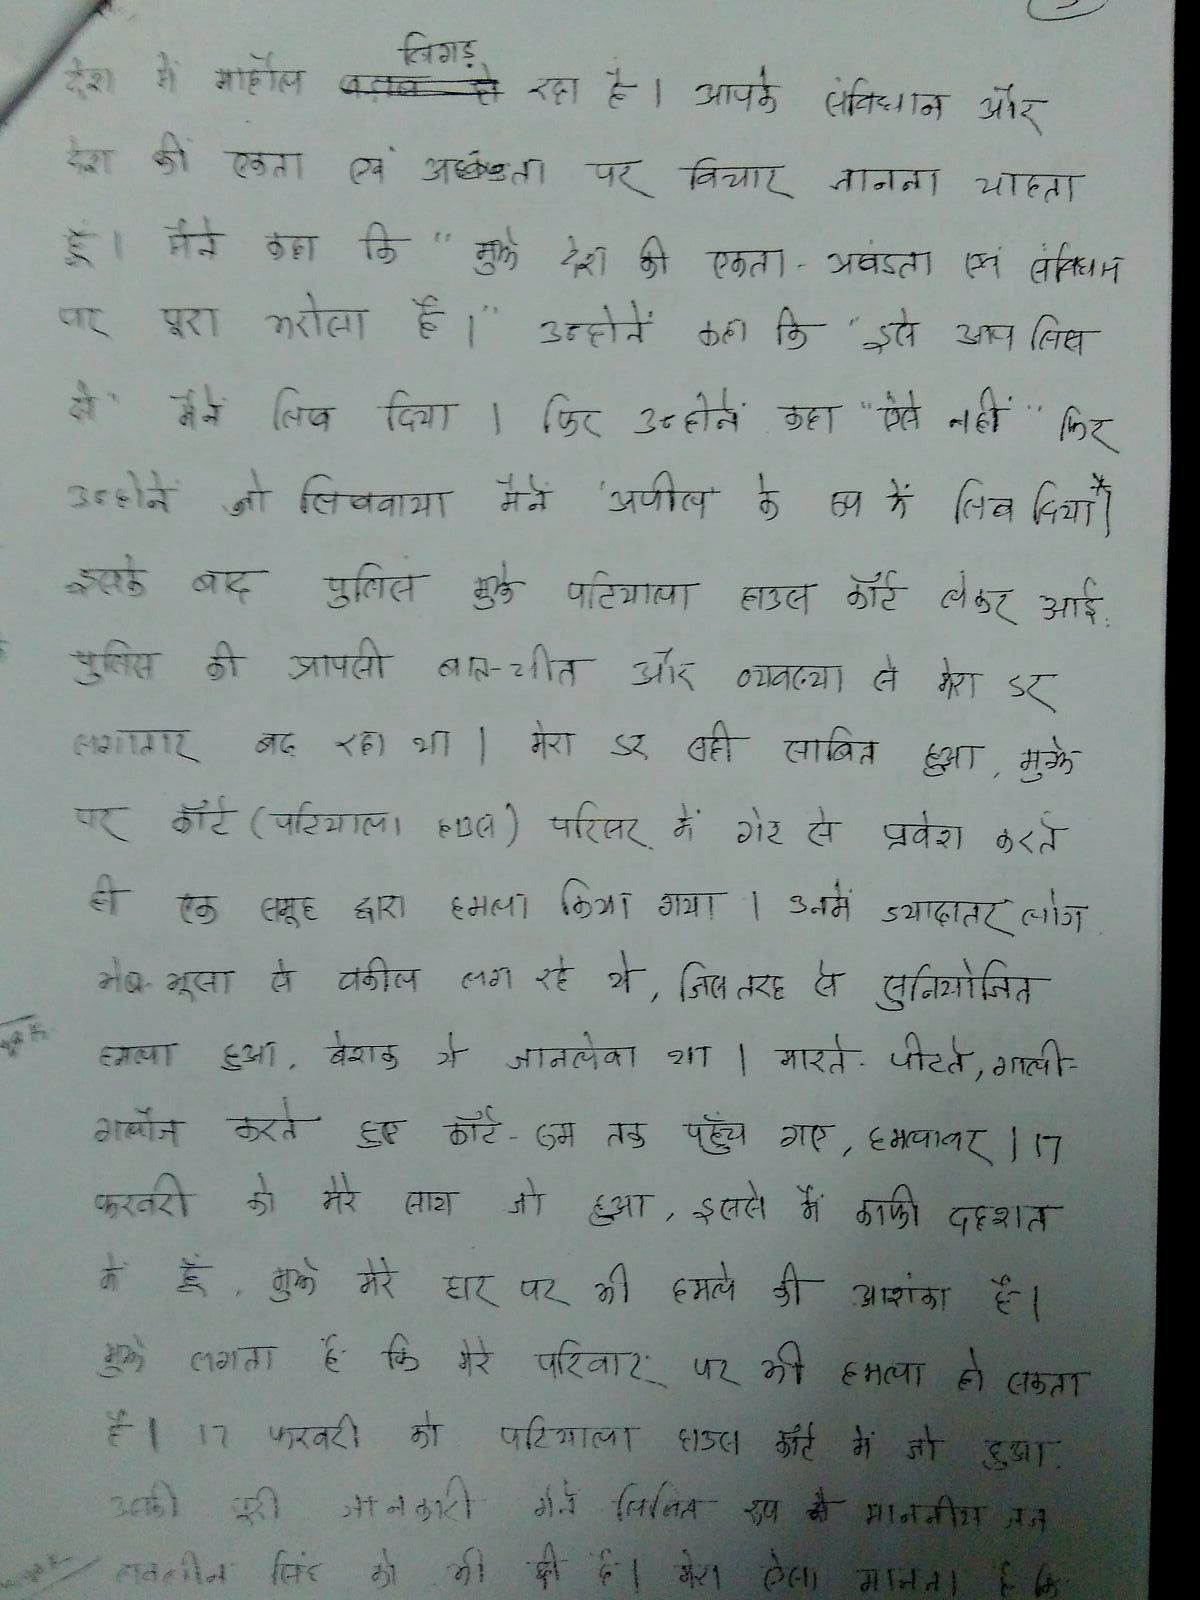 देश में माहौल बिगड़ रहा है। आपके संविधान और
देश की एकता एवं अखंडता पर विचार जानना चाहता
हूँ। मैंने कहा कि "मुझे देश की एकता-अखंडता एवं संविधान
पर पूरा भरोसा है।" उन्होनें कहा कि "इसे आप लिख
दें" मैनें लिख दिया। फिर उन्होनें कहा "ऐसे नहीं" फिर
उन्होनें जो लिखवाया मैनें 'अपील' के रूप में लिख दिया है।
इसके बाद पुलिस मुझे पटियाला हाउस कॉर्ट लेकर आई.
पुलिस की आपसी बात-चीत और व्यवस्था से मेरा डर
लगातार बढ़ रहा था। मेरा डर सही साबित हुआ, मुझे
पर कॉर्ट (पटियाला हाउस) परिसर में गेट से प्रवेश करते
ही एक समूह द्वारा हमला किया गया। उनमें ज्यादातर लोग
भेष-भूसा से वकील लग रहे थे, जिस तरह से सुनियोजित
हमला हुआ, बेशक ये जानलेवा था। मारते-पीटते, गाली-
गलौज करते हुए कॉर्ट-रूम तक पहुँच गए, हमलावर। 17
फरवरी को मेरे साथ जो हुआ, इससे मैं काफी दहशत
में हूँ, मुझे मेरे घर पर भी हमले की आशंका है।
मुझे लगता है कि मेरे परिवार पर भी हमला हो सकता
है। 17 फरवरी को पटियाला हाउस कॉर्ट में जो हुआ.
उसकी पूरी जानकारी मैनें लिखित रूप से माननीय जज
लवलीन सिंह को भी दी है। मेरा ऐसा मानना है कि